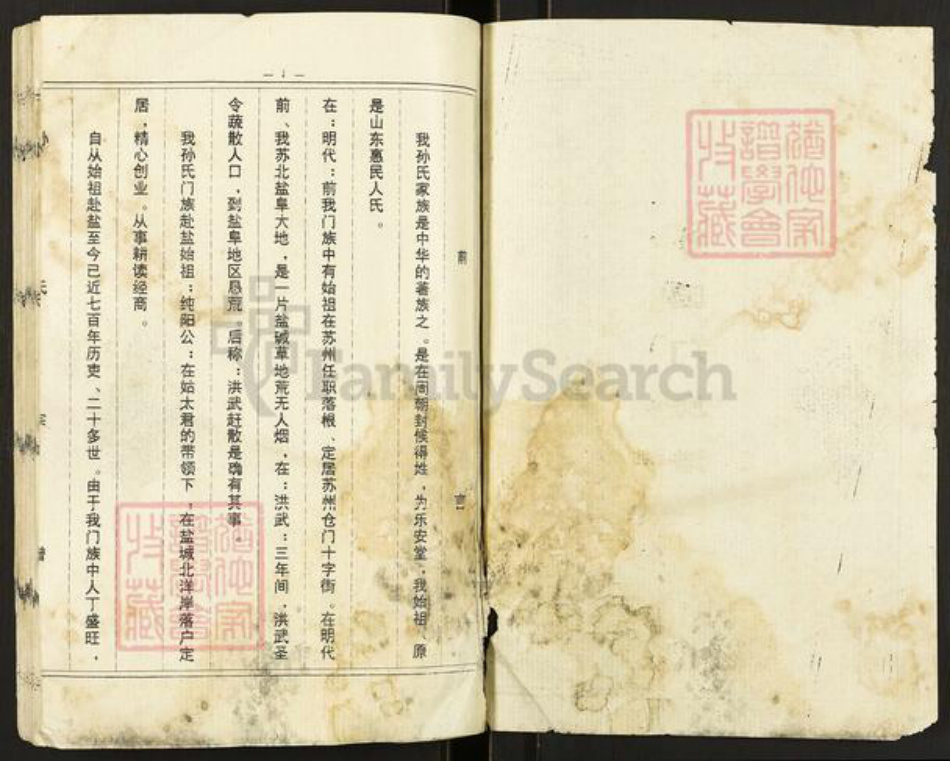 — 1 —
前言
我孙氏家族是中华的著族之。是在周朝封候得姓，为乐安堂，我始祖、原
是山东惠民人氏。
在：明代：前我门族中有始祖在苏州任职落根、定居苏州仓门十字街。在明代
前、我苏北盐阜大地，是一片盐碱草地荒无人烟，在：洪武：三年间，洪武圣
令蔬散人口，到盐阜地区恳荒。后称：洪武赶散是确有其事。
我孙氏门族赴盐始祖：纯阳公：在姑太君的带领下，在盐城北洋岸落户定
居，精心创业。从事耕读经商。
自从始祖赴盐至今已近七百年历吏、二十多世。由于我门族中人丁盛旺，
FamilySearch
猶他家
譜學會
收藏
猶他家
譜學會
收藏